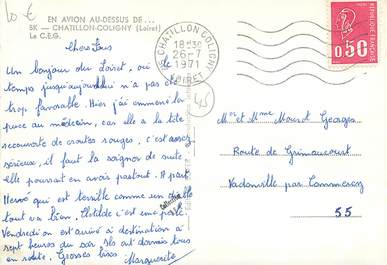 10 €
EN AVION AU-DESSUS DE...
5K — CHATILLON-COLIGNY (Loiret)
Le C.E.G.
CHATILLON COLIGNY
18H30
26-7
1971
LOIRET
REPUBLIQUE FRANCAISE
0,50
45
Chers Tous
Un bonjour du Loiret, où le
temps jusqu'aujourd'hui n'a pas été
trop favorable. Hier j'ai emmené la
puce au médecin, car elle a la tête
recouverte de croutes rouges, c'est assez
sérieux, il faut la soigner de suite
elle pourrait en avoir partout. A part
Hervé qui est terrible comme un diable
tout va bien, Clotilde c'est une perle.
Vendredi on est arrivé à destination à
sept heures du soir. Ils ont dormi tous
en voiture. Grosses bises
Marguerite
Mr et Mme Georges
Route de
Vadonville par Commercy
55